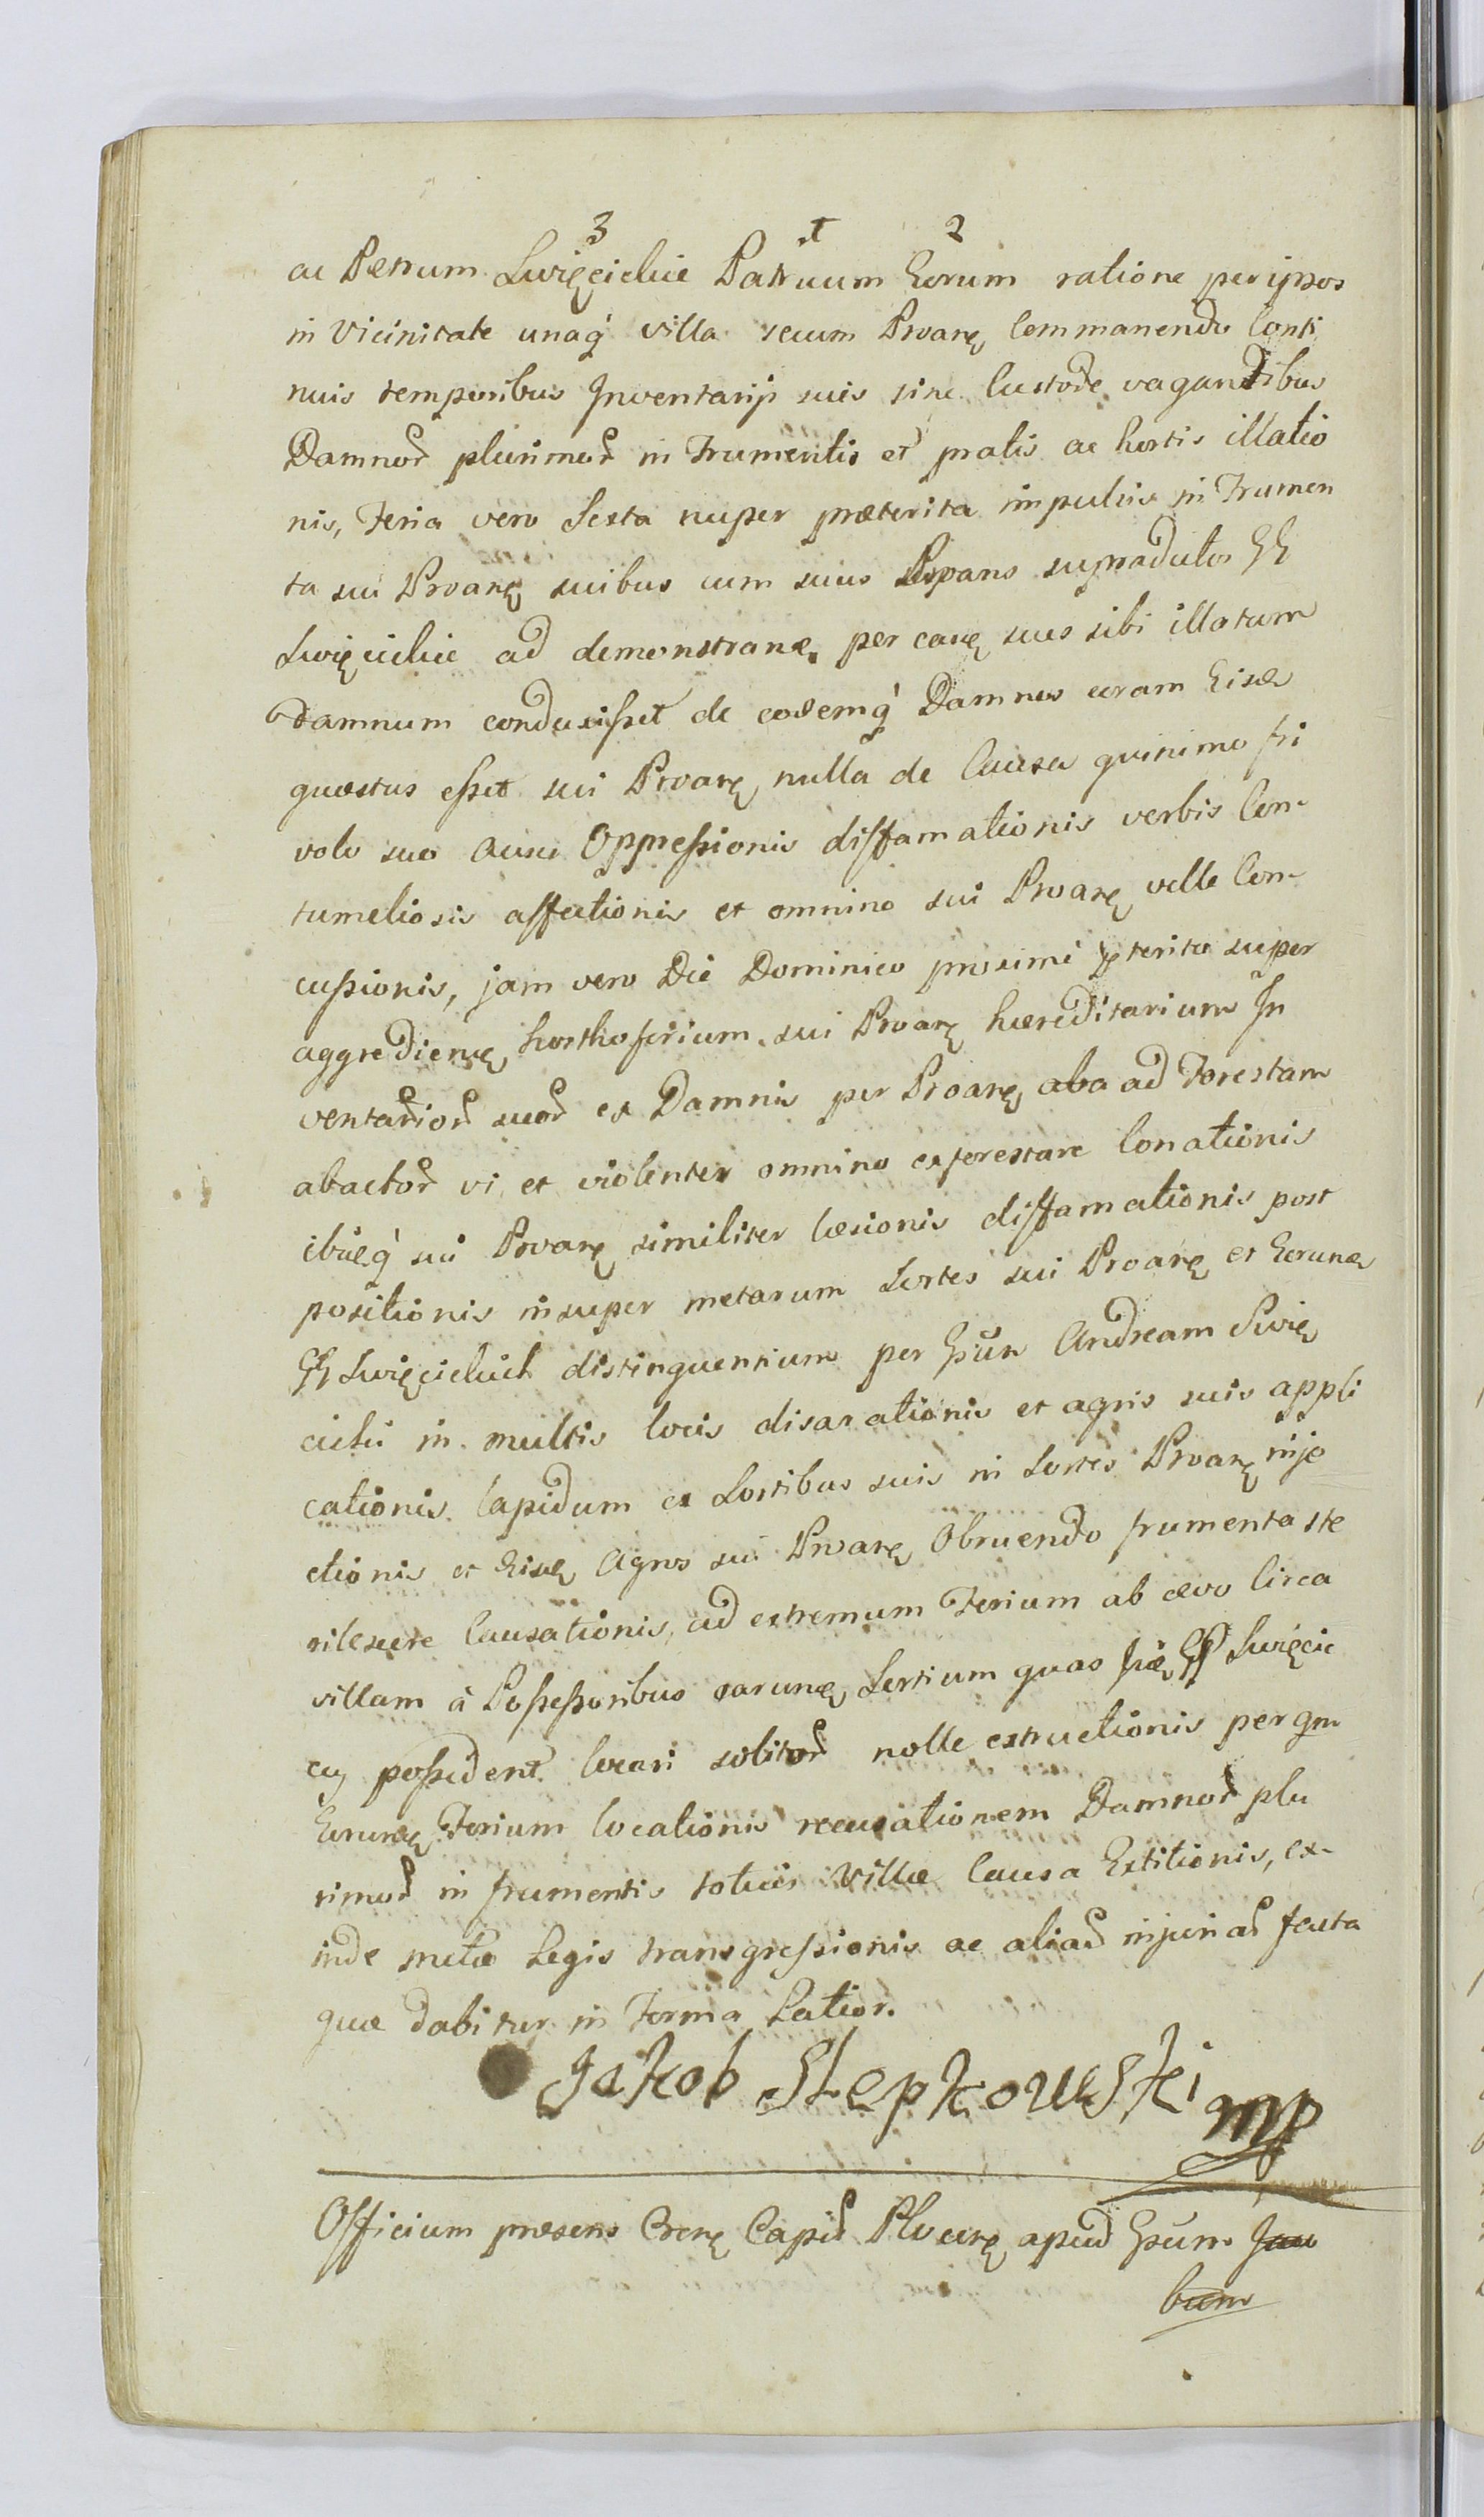 3 1 2
ac Petrum Swięcickie Patruum Eorum ratione per ipsos
in Vicinitate unaq́ villa secum Proarę Commanendo Conti
nuis temporibus Inventarijs suis sine Custode vagantibus
Damnoꝝ plurimoꝝ in Frumentis et pratis ac hortis illatio
nis, Feria vero Sexta nuper præterita impulsis in Frumen
ta sui Proarę suibus cum suus supradictos GG
Swięcickie ad demonstranę per easę sues sibi illatum
Damnum conduxisset de eodemq́ Damno coram Eisdę
quæstus esset sui Proarę nulla de Causa quinimo fri
volo suo ausu Oppressionis diffamationis verbis Con-
tumeliosis affectionis et omnino sui Proarę velle Con-
cussionis, jam vero Die Dominico proximè pterito super
aggredienę horthoferium sui Proarę hæreditarium In
ventarioꝝ suoꝝ ex Damnis per Proarę aba ad Forestam
abactoꝝ vi et violenter omnino exforestare Conationis
ibidęq́ sui Proarę similiter læsionis diffamationis post
positionis insuper metarum Sortes sui Proarę et Eorundę
GG Swięcickich distinguentium per Gsūn Andream Swię
cicki in multis locis disarationis et agris suis appli
cationis lapidum ex Sortibus suis in Sortes Proarę inje
ctionis et Eisdę Agros sui Proarę Obruendo frumenta ste
rilescere Causationis, ad extremum Ferium ab ævo Circa
villam à Possessoribus earundę Sortium quas GG Swięcic
cy possident locari solitoꝝ nolle extructionis per qm
Eorundę Ferium locationis recusationem Damnoꝝ plu
rimoꝝ in frumentis totius Villæ Causa Extitionis, ex-
inde metæ Legis transgressionis ac aliaꝝ injuriaꝝ juxta
quæ dabitur in Forma Latior.
Jakob Slepkowski mp
Officium præsens Crense Capit Plocense apud Gsūm Jaco
bum